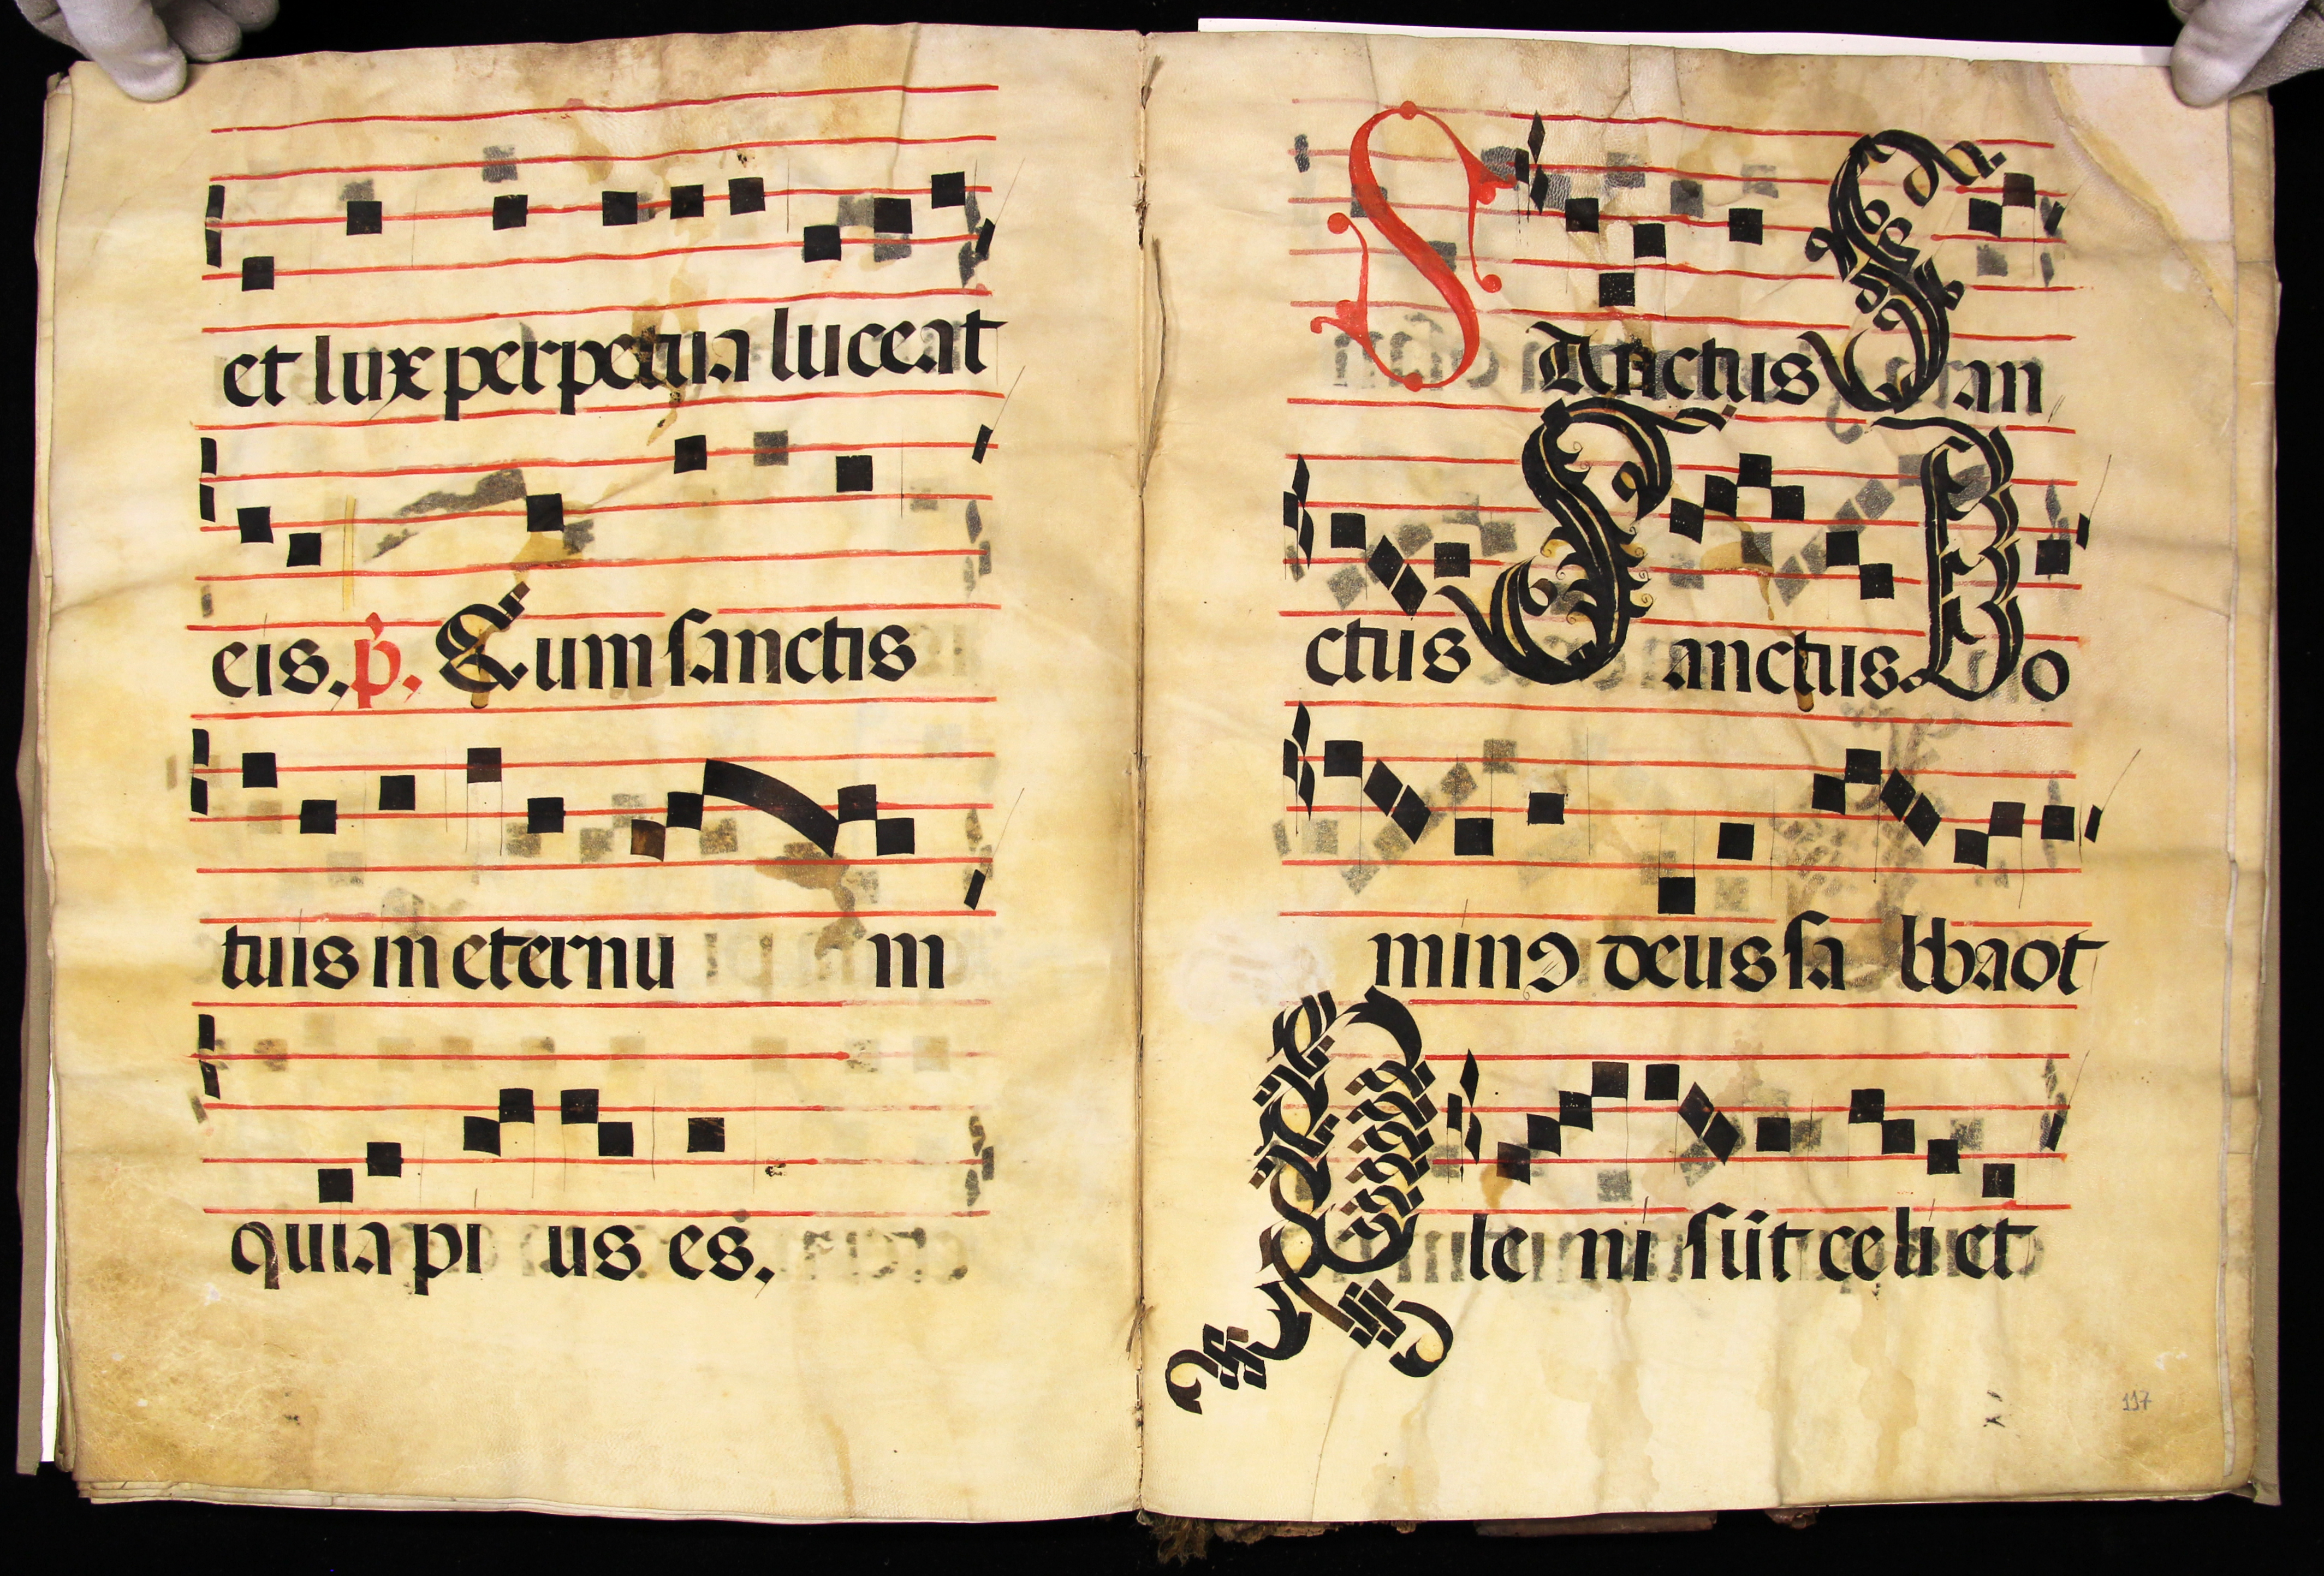 et lux perpetua luceat
eis. p̕. Cum sanctis
tuis in eternu m
quia pi us es.
Sanctus San
ctus Sanctus. Do
mino deus sa bbaot
Ple ni sūt celi et
117